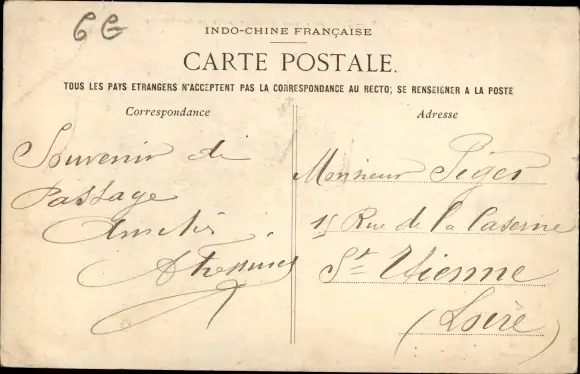 INDO-CHINE FRANÇAISE
CARTE POSTALE.
TOUS LES PAYS ETRANGERS N'ACCEPTENT PAS LA CORRESPONDANCE AU RECTO; SE RENSEIGNER A LA POSTE
Correspondance
Adresse
Souvenir di
Passage
Monsieur
Rue de la Caserne
St Etienne
(Loire)